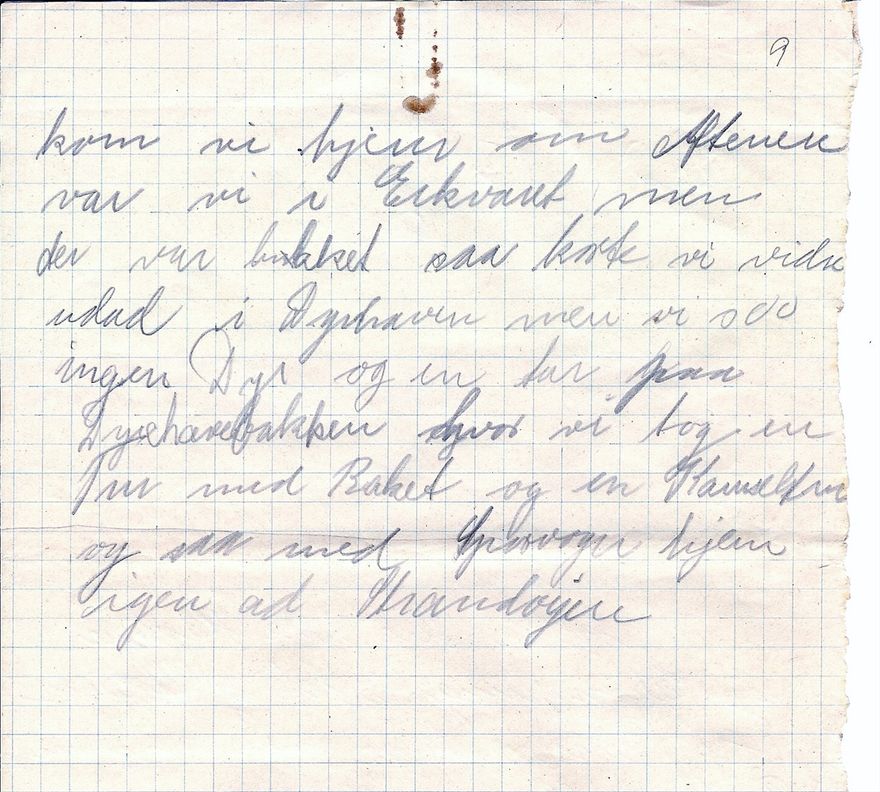 9
kom vi hjem om Aftenen
var vi i Cirkvaret men
der var lukket saa kørte vi vider
udad i Dyrhaven men vi saa
ingen Dyr og en tur paa
Dyrehavebakken hvor vi tog en
Tur med Raket og en Kameltur
og saa med Sporvogn hjem
igen ad Strandvejen